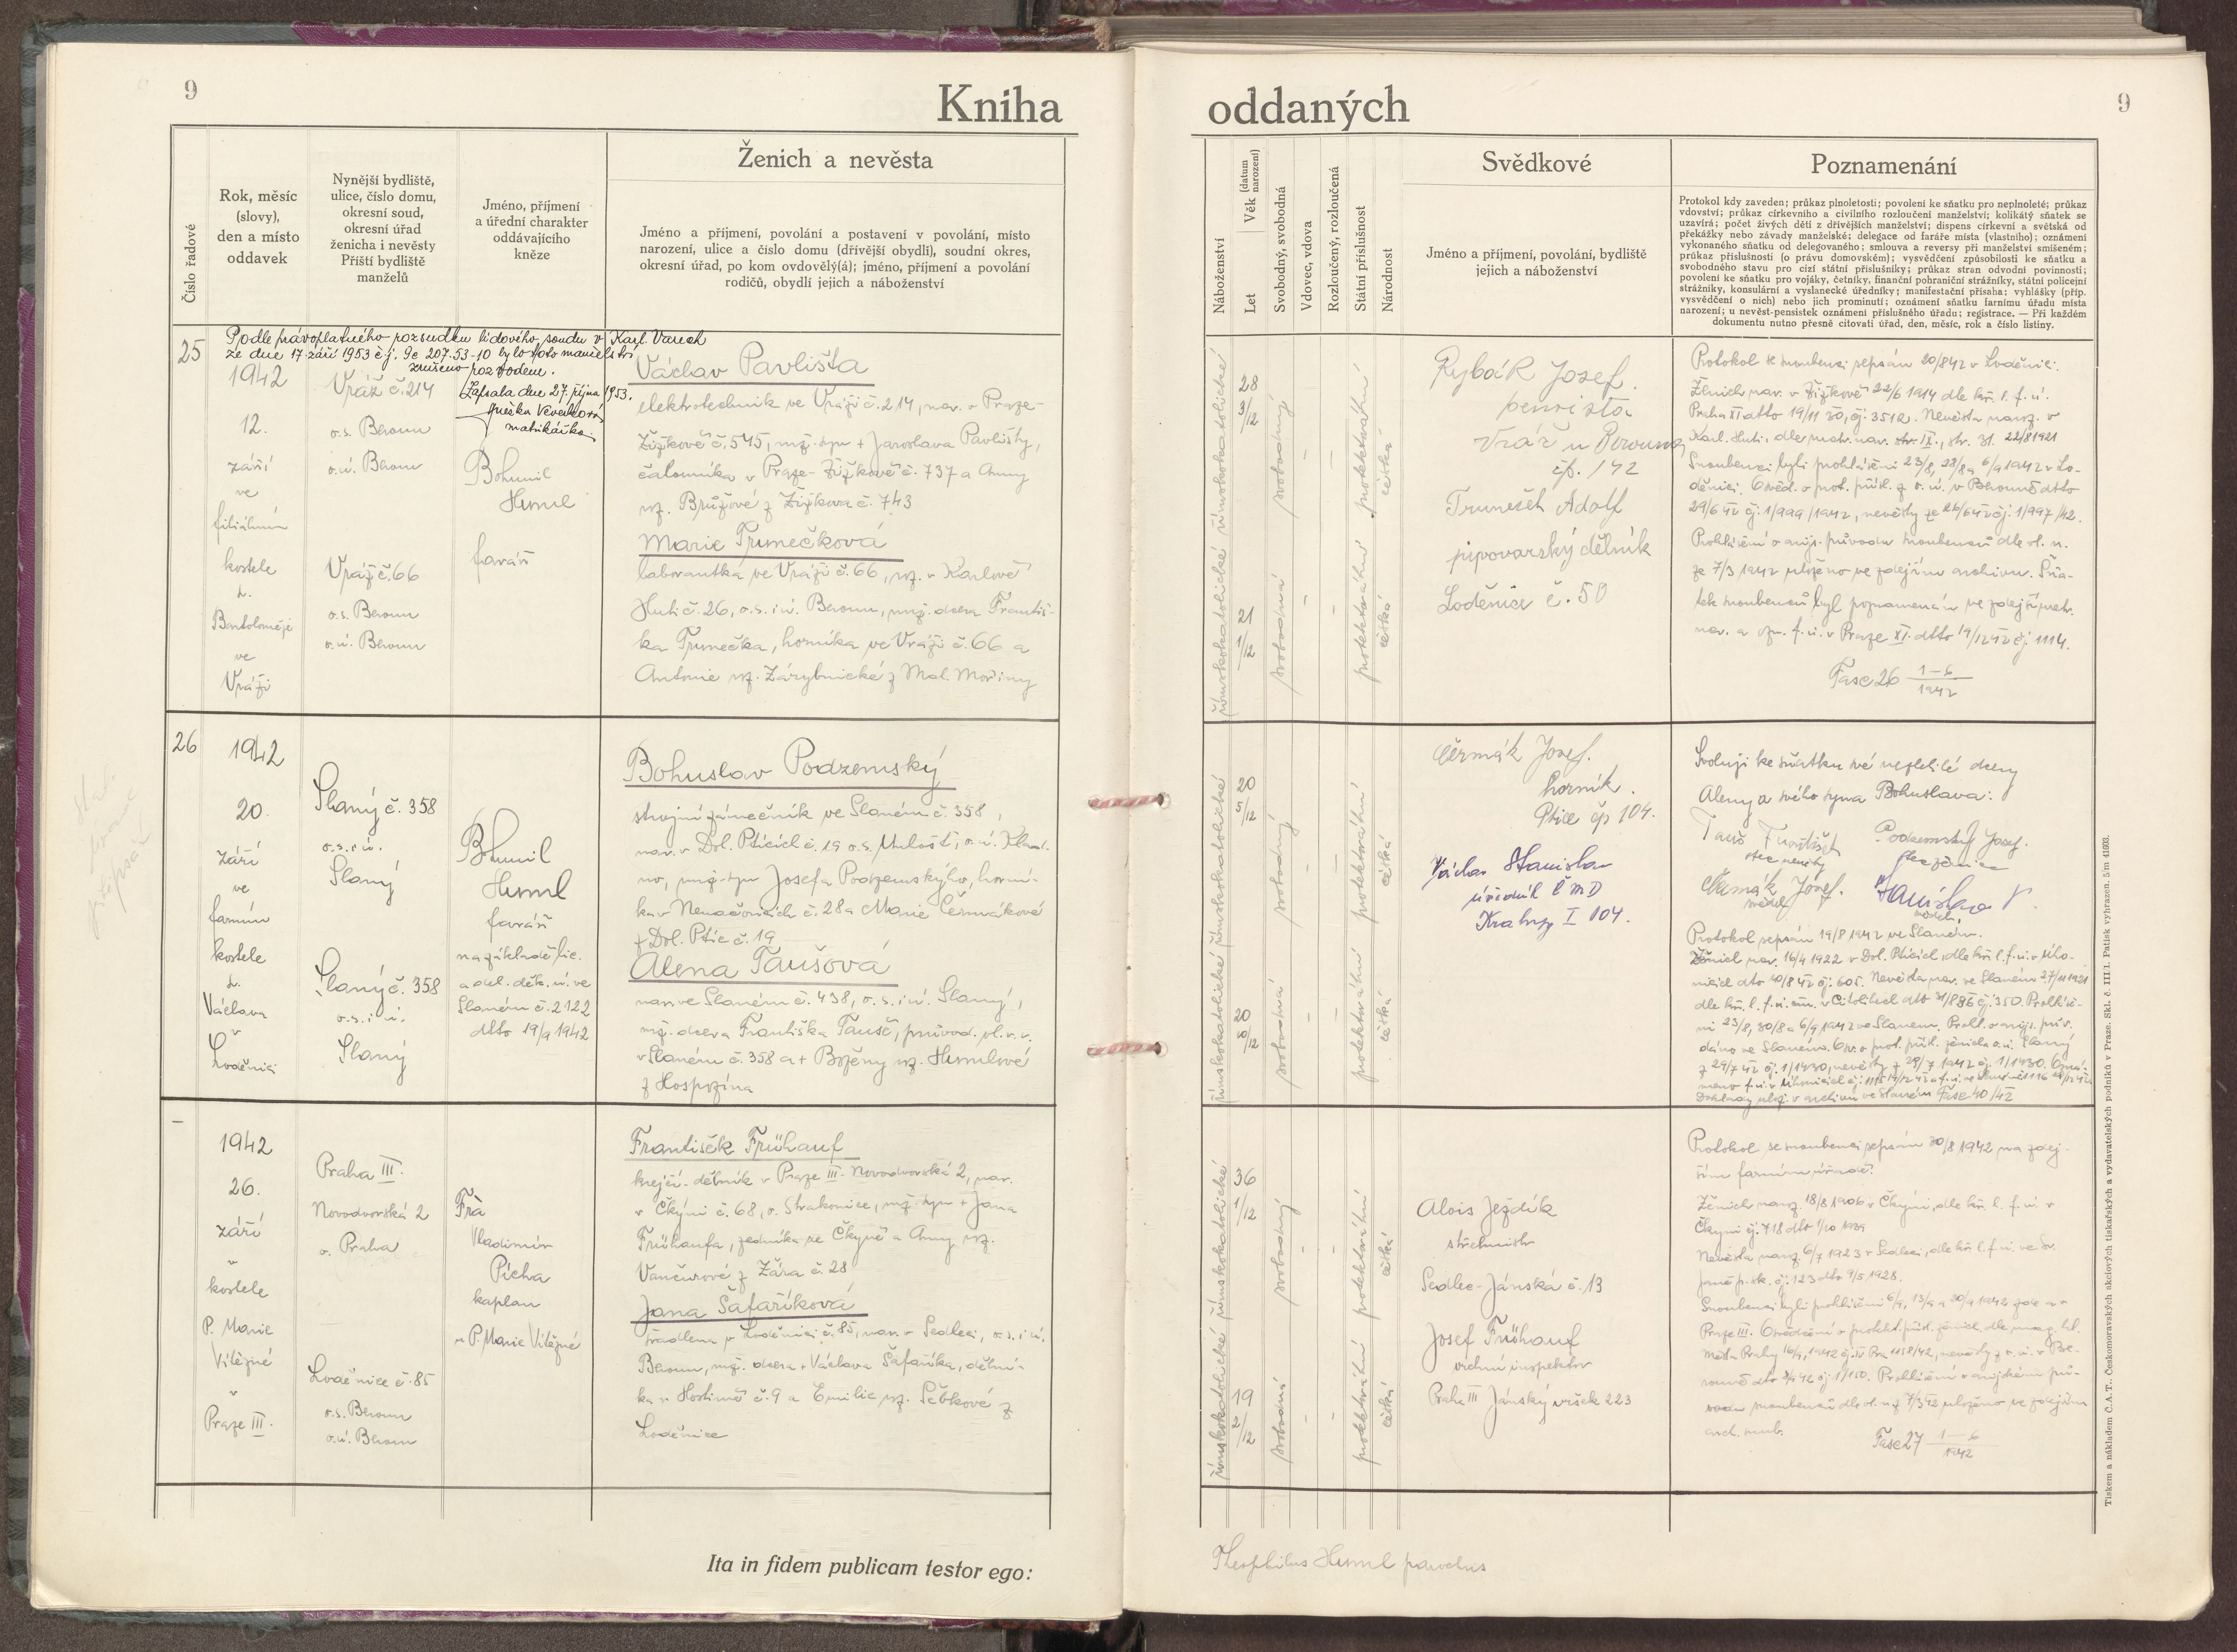 9
Kniha
Číslo řadové
Rok, měsíc
(slovy),
den a místo
oddavek
Nynější bydliště,
ulice, číslo domu,
okresní soud,
okresní úřad
ženicha i nevěsty
Příští bydliště
manželů
Jméno, příjmení
a úřední charakter
oddávajícího
kněze
Ženich a nevěsta
Jméno a příjmení, povolání a postavení v povolání, místo
narození, ulice a číslo domu (dřívější obydlí), soudní okres,
okresní úřad, po kom ovdovělý(á); jméno, příjmení a povolání
rodičů, obydlí jejich a náboženství
Podle právoplatného rozsudku lidového soudu v Karl. Varech
ze dne 17. září 1953 č.j. 9c 207.53-10 bylo toto manželství
zrušeno rozvodem.
Zapsala dne 27. října 1953.
matrikářka
25
1942
12.
září
ve
filiálním
kostele
sv.
Bartoloměje
ve
Vráži
Vráž č. 214
o.s. Beroun
o.ú. Beroun
Vráž č. 66
o.s. Beroun
o.ú. Beroun
Bohumil
Huml
farář
Václav Pavlišta
elektrotechnik ve Vráži č. 214, nar. v Praze-
Žižkově č. 545, mž. syn + Jaroslava Pavlišty,
čalouníka v Praze-Žižkově č. 737 a Anny
roz. Brůžové z Žižkova č. 743
Marie Trunečková
laborantka ve Vráži č. 66, roz. v Karlově
Huti č. 26, o.s. i ú. Beroun, mž. dcera Františ-
ka Trunečka, horníka ve Vráži č. 66 a
Antonie roz. Zárybnické z Mal. Mořiny
26
1942
20.
září
ve
farním
kostele
sv.
Václava
v
Loděnici
Slaný č. 358
o.s. i ú.
Slaný
Slaný č. 358
o.s. i ú.
Slaný
Bohumil
Huml
farář
na základě lic.
a del. děk. ú. ve
Slaném č. 2122
dtto 19/9 1942
Bohuslav Podzemský
strojní zámečník ve Slaném č. 358,
nar. v Dol. Pticích č. 19 o.s. Unhošť, o.ú. Klad-
no, mž. syn Josefa Podzemského, horní-
ka v Nenačovicích č. 28 a Marie Čermákové
z Dol. Ptic č. 19
Alena Taušová
nar. ve Slaném č. 438, o.s. i ú. Slaný,
mž. dcera Františka Tauše, průvod. vl. v.v.
v Slaném č. 358 a + Boženy roz. Humlové
z Hospozína
–
1942
26.
září
v
kostele
P. Marie
Vítězné
v
Praze III.
Praha III.
Novodvorská 2
o. Praha
Loděnice č. 85
o.s. Beroun
o.ú. Beroun
Fra
Vladimír
Pícha
kaplan
u P. Marie Vítězné
František Frühauf
krejčí-dělník v Praze III-Novodvorská 2, nar.
v Čkyni č. 68, o. Strakonice, mž. syn + Jana
Frühaufa, zedníka ve Čkyně a Anny roz.
Vančurové z Žára č. 28
Jana Šafaříková
švadlena v Loděnici č. 85, nar. v Sedleci, o.s. i ú.
Beroun, mž. dcera + Václava Šafaříka, dělní-
ka v Hostimě č. 9 a Emilie roz. Sebkové z
Loděnice
Ita in fidem publicam testor ego:
oddaných
9
Náboženství
Let
Věk (datum narození)
Svobodný, svobodná
Vdovec, vdova
Rozloučený, rozloučená
Státní příslušnost
Národnost
Svědkové
Jméno a příjmení, povolání, bydliště
jejich a náboženství
Poznamenání
Protokol kdy zaveden; průkaz plnoletosti; povolení ke sňatku pro neplnoleté; průkaz
vdovství; průkaz církevního a civilního rozloučení manželství; kolikátý sňatek se
uzavírá; počet živých dětí z dřívějších manželství; dispens církevní a světská od
překážky nebo závady manželské; delegace od faráře místa (vlastního); oznámení
vykonaného sňatku od delegovaného; smlouva a reversy při manželství smíšeném;
průkaz příslušnosti (o právu domovském); vysvědčení způsobilosti ke sňatku a
svobodného stavu pro cizí státní příslušníky; průkaz stran odvodní povinnosti;
povolení ke sňatku pro vojáky, četníky, finanční pohraniční strážníky, státní policejní
strážníky, konsulární a vyslanecké úředníky; manifestační přísaha; vyhlášky (příp.
vysvědčení o nich) nebo jich prominutí; oznámení sňatku farnímu úřadu místa
narození; u nevěst-pensistek oznámení příslušného úřadu; registrace. — Při každém
dokumentu nutno přesně citovati úřad, den, měsíc, rok a číslo listiny.
římskokatolické
28
3/12
svobodný
–
–
protektorátní
česká
římskokatolické
21
1/12
svobodná
–
–
protektorátní
česká
Rybář Josef.
pensista
Vráž u Berouna
čp. 142
Truneček Adolf
pivovarský dělník
Loděnice č. 50
Protokol se snoubenci sepsán 20/8 42 v Loděnici.
Ženich nar. v Žižkově 22/6 1914 dle kř. l. f. ú.
Praha XI dtto 19/11 30, čj. 3512. Nevěsta naroz. v
Karl. Huti, dle matr. nar. str. IX., str. 31. 22/8 1921
Snoubenci byli prohlášeni 23/8, 28/8 a 6/9 1942 v Lo-
děnici. Osvěd. o prot. přísl. z o.ú. v Berouně dtto
29/6 42 čj. 1/999/1942, nevěsty ze 26/6 42 čj. 1/997/42.
Prohlášení o arijs. původu snoubenců dle vl. n.
ze 7/3 1942 uloženo ve zdejším archivu. Sňa-
tek snoubenců byl poznamenán ve zdejší matr.
nar. a ozn. f. ú. v Praze XI. dtto 19/12 42 čj. 1114.
Fasc 26 1–6/1942
římskokatolické
20
5/12
svobodný
–
–
protektorátní
česká
římskokatolické
20
10/12
svobodná
–
–
protektorátní
česká
Čermák Josef.
horník.
Ptice čp 104.
Václav Stanislav
úředník ČMD
Kralupy I 104.
Svoluji ke sňatku své nezletilé dcery
Aleny a svého syna Bohuslava:
Tauš František
otec nevěsty
Podzemský Josef.
otec ženicha
Čermák Josef.
svědek
Stanislav V.
svědek
Protokol sepsán 19/8 1942 ve Slaném.
Ženich nar. 16/4 1922 v Dol. Pticích dle kř. l. f. ú. v Úho-
nicích dto 10/8 42 čj. 605. Nevěsta nar. ve Slaném 27/11 1921
dne 23/8, 30/8 a 6/9 1942 ve Slaném. Prohl. o arijs. pův.
dáno ve Slaném. Osv. o prot. přísl. ženicha o.ú. Slaný
z 29/7 42 čj. 1/1430, nevěsty z 29/7 1942 čj. 1/1430.
Doklady ulož. v archivu ve Slaném Fasc 40/42
římskokatolické
36
1/12
svobodný
–
–
protektorátní
česká
římskokatolické
19
2/12
svobodná
–
–
protektorátní
česká
Alois Ježdík
Sedlec-Jánská č. 13
Josef Frühauf
vrchní inspektor
Praha III Jánský vršek 223
Protokol se snoubenci sepsán 30/8 1942 na zdej-
ším farním úřadě.
Ženich naroz. 18/8 1906 v Čkyni, dle kř. l. f. ú. v
Čkyni čj. 718 dto 1/10 1939
Nevěsta naroz. 6/7 1923 v Sedleci, dle kř. l. f. ú. ve Sv.
Janě p. sk. čj. 123 dto 9/5 1928.
Snoubenci byli prohlášeni 6/9, 13/9 a 20/9 1942 zde a v
Praze III. Osvědčení o protekt. přísl. ženich. dle mag. hl.
města Prahy 16/9, 1942 čj. IV Pra 1158/42, nevěsty z o.ú. v Be-
rouně čj. 1/150. Prohlášení o arijském pů-
vodu snoubenců dle vl. n. z 7/3 42 uloženo ve zdejším
arch.
Fasc 27 1–6/1942
Theophilus Huml parochus
Tiskem a nákladem Č.A.T., Českomoravských akciových tiskařských a vydavatelských podniků v Praze. Skl. č. III/1. Patisk vyhrazen. 5/m 41603.